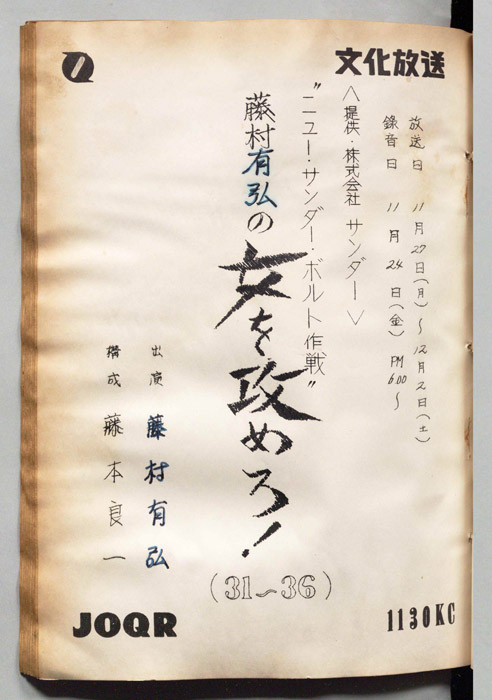 文化放送
放送日 11月27日(月)〜12月2日(土)
録音日 11月24日(金) PM6:00〜
〈提供・株式会社 サンダー〉
"ニュー・サンダー・ボルト作戦"
藤村有弘の女を攻めろ!
(31〜36)
出演 藤村有弘
構成 藤本良一
JOQR
1130KC